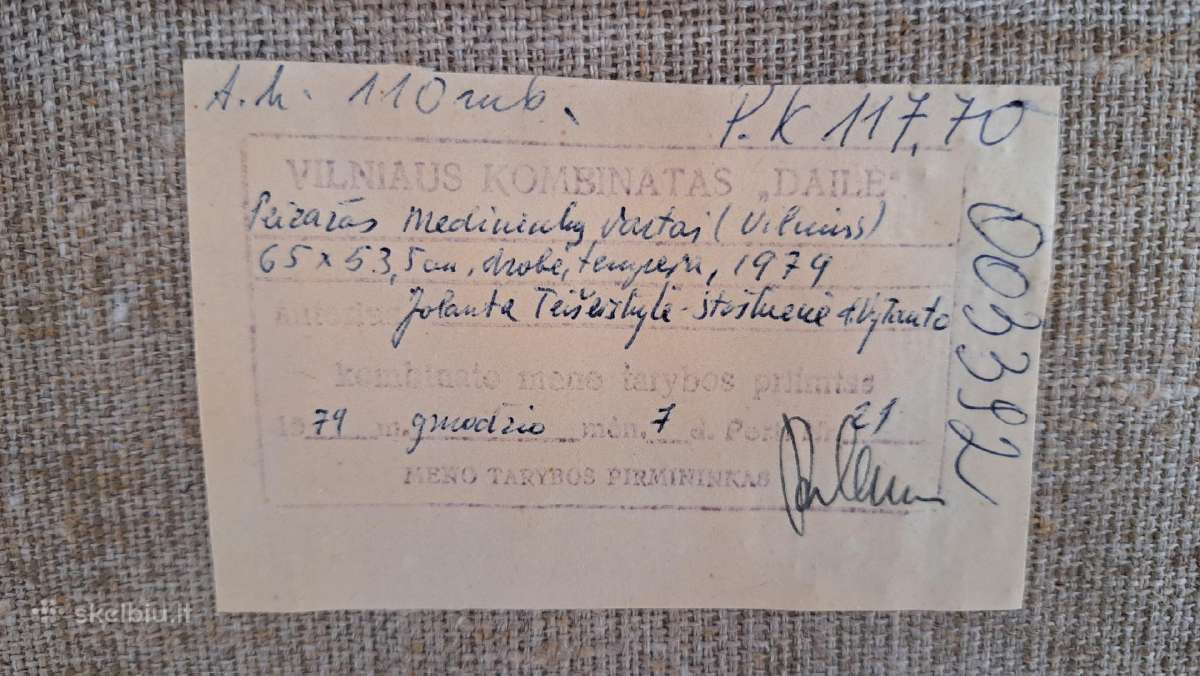 A.h. 110 rub. P.K 117,70
VILNIAUS KOMBINATAS „DAILĖ"
Peizažas Medininkų Vartai (Vilnius)
65 x 53,5 cm, drobė, tempera, 1979
Jolanta Teišerskytė-Stoškienė Vytauto
kombinato meno tarybos priimtas
1979 m. gruodžio mėn. 7 d. 21
MENO TARYBOS PIRMININKAS
003392
skelbiu.lt